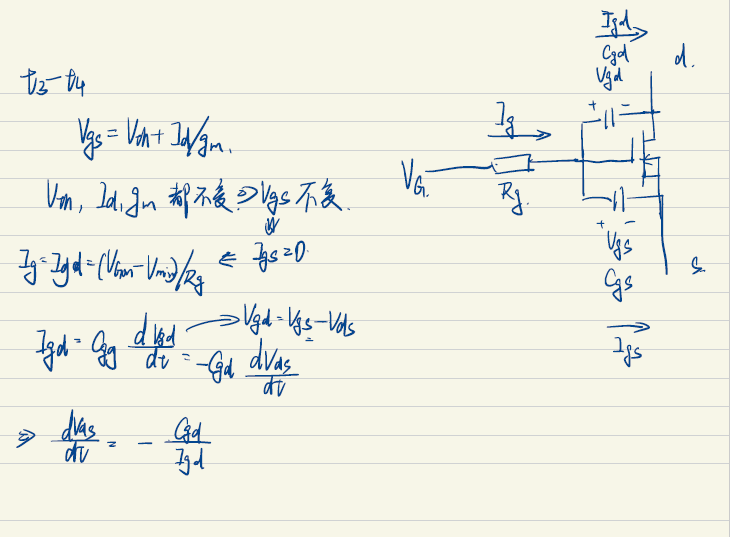 t3-t4
Vgs = Vth + Id/gm,
Vth, Id, gm 都不变 ⇒ Vgs 不变.
⇓
Ig = Igd = (VGon - Vmiller)/Rg ⇐ Igs = 0.
Igd = Cgd dVgd/dt = -Cgd dVds/dt
→ Vgd = Vgs - Vds
⇒ dVds/dt = - Cgd/Igd
Igd
Cgd
Vgd
d.
+ -
Ig
VG.
Rg.
+ -
Vgs
Cgs
s.
Igs